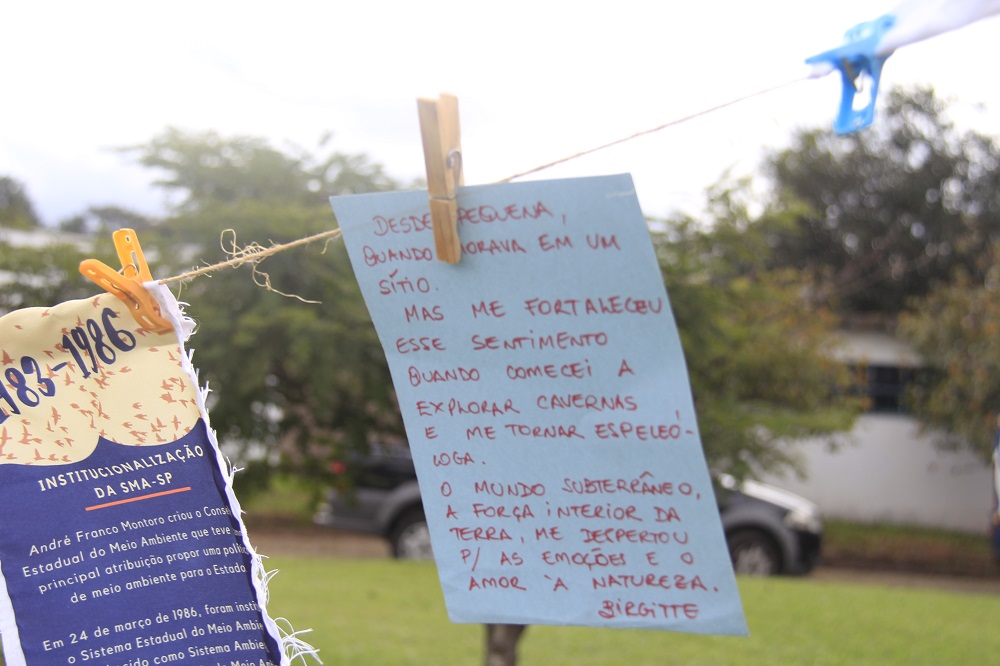 1983-1986
INSTITUCIONALIZAÇÃO
DA SMA-SP
André Franco Montoro criou o Conse
Estadual do Meio Ambiente que teve
principal atribuição propor uma polí
de meio ambiente para o Estado
Em 24 de março de 1986, foram insti
o Sistema Estadual do Meio Ambie
como Sistema Ambie
DESDE PEQUENA,
QUANDO MORAVA EM UM
SÍTIO.
MAS ME FORTALECEU
ESSE SENTIMENTO
QUANDO COMECEI A
EXPLORAR CAVERNAS
E ME TORNAR ESPELEÓ-
LOGA.
O MUNDO SUBTERRÂNEO,
A FORÇA INTERIOR DA
TERRA, ME DESPERTOU
P/ AS EMOÇÕES E O
AMOR À NATUREZA.
BIRGITTE